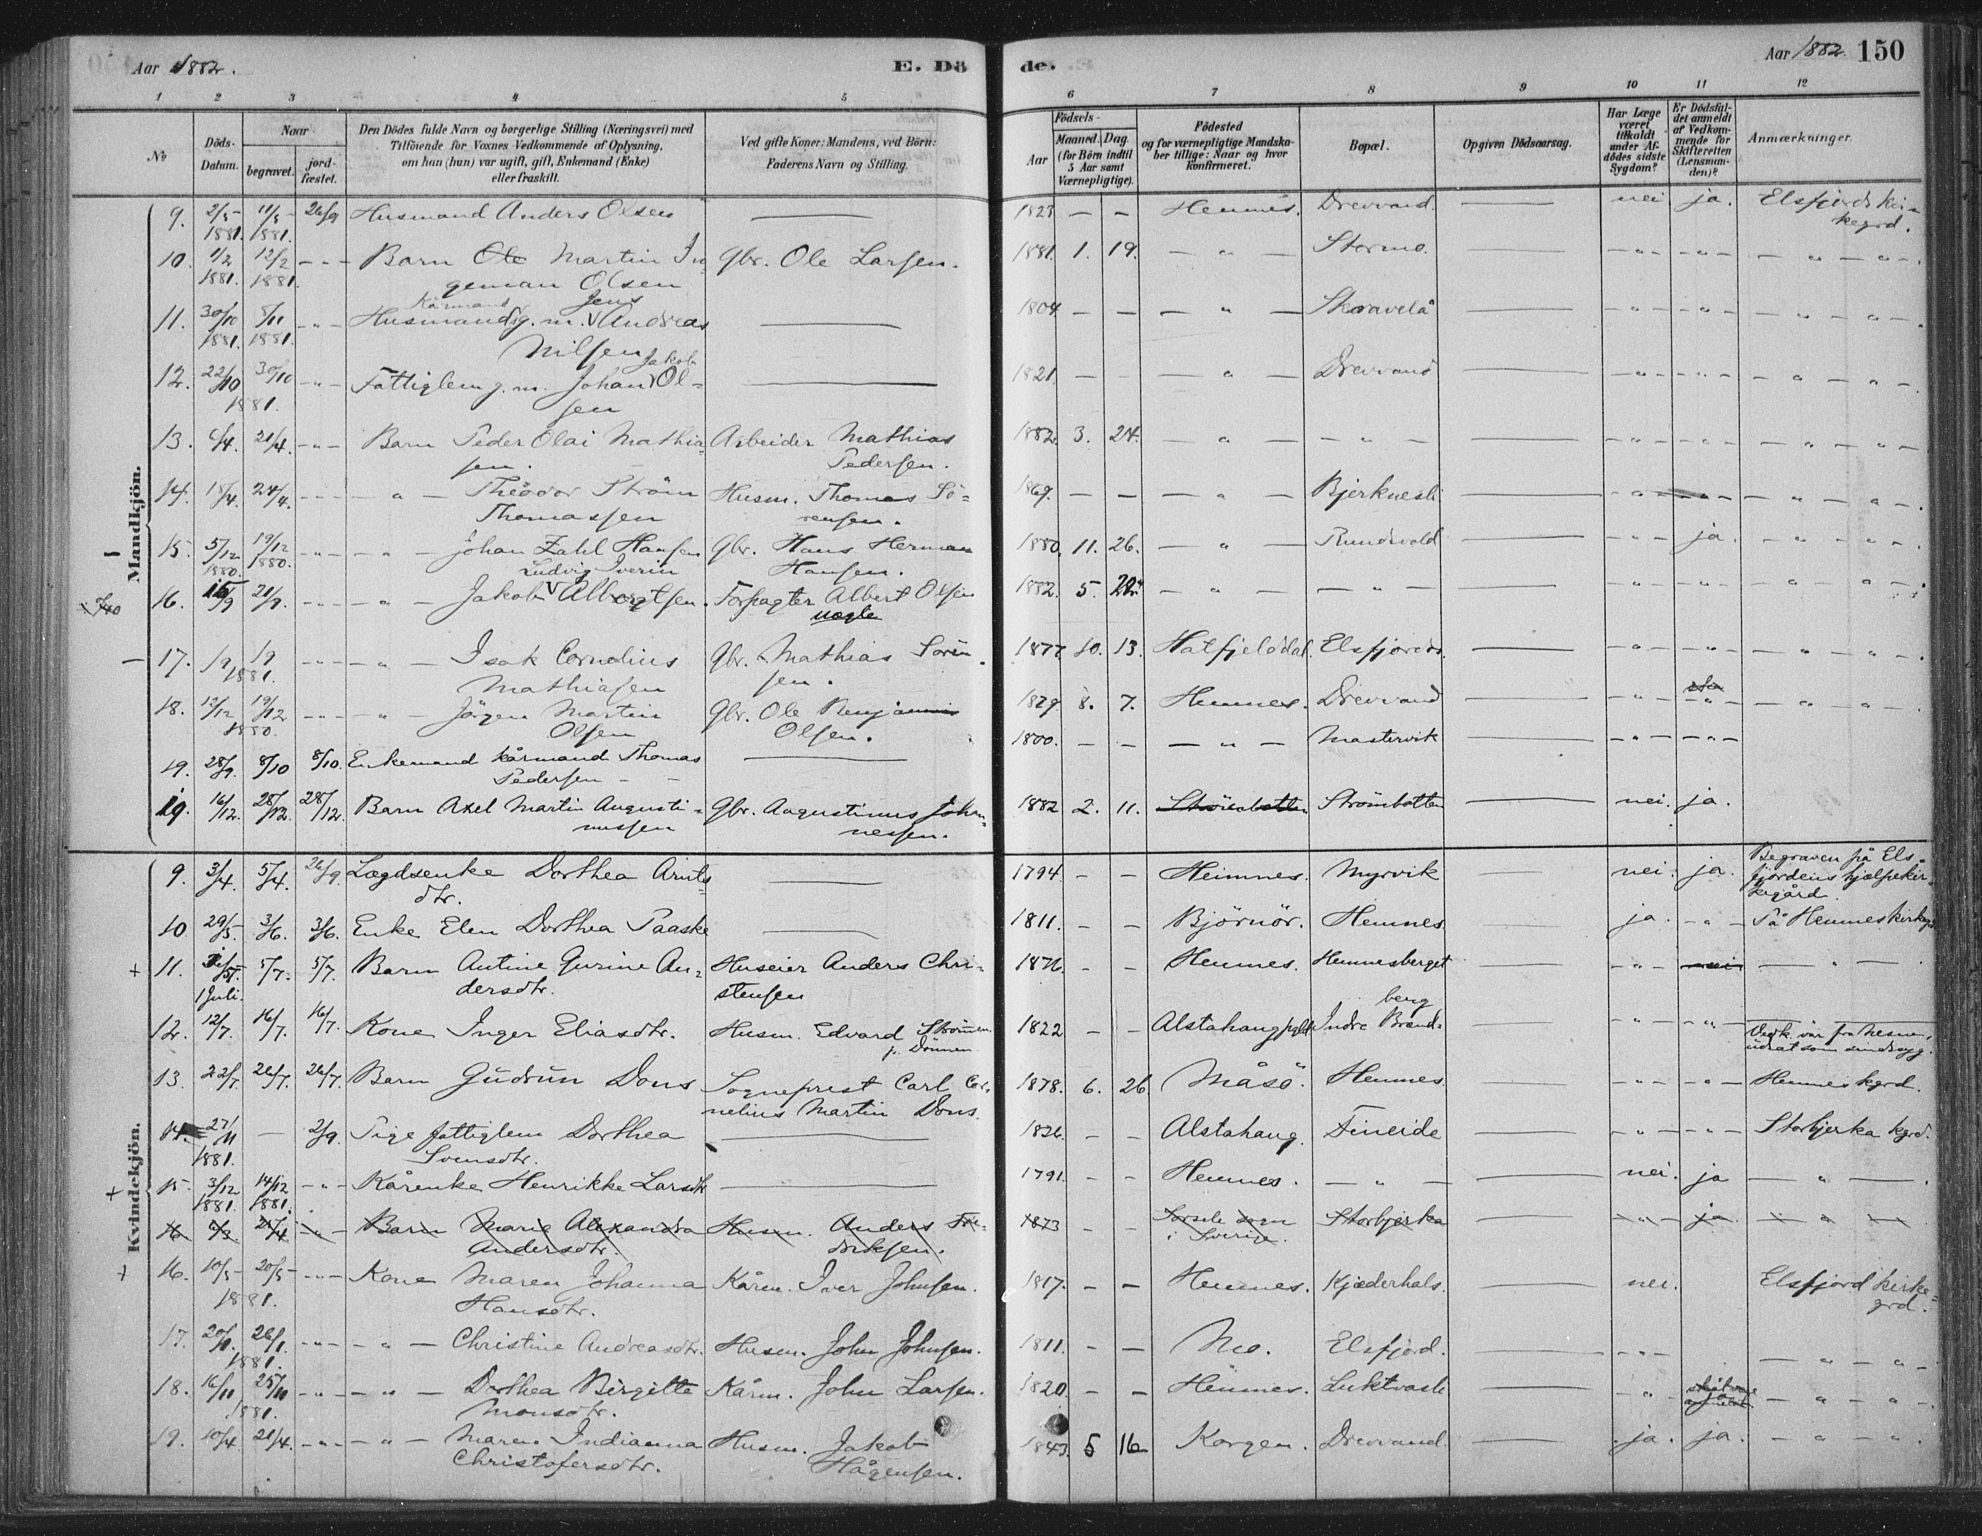 Aar 1882. E. Dö de. Aar 1882. 150
1 2 3 4 5 6 7 8 9 10 11 12
No
Döds-Datum.
Naar
begravet. jordfæstet.
Den Dödes fulde Navn og borgerlige Stilling (Næringsvei) med
Tilföiende for Voxnes Vedkommende af Oplysning,
om han (hun) var ugift, gift, Enkemand (Enke)
eller fraskilt.
Ved gifte Koner: Mandens, ved Börn:
Faderens Navn og Stilling.
Födsels-
Aar Maaned. Dag.
(for Börn indtil
5 Aar samt
Værnepligtige).
Födested
og for værnepligtige Mandska-
ber tillige: Naar og hvor
konfirmeret.
Bopæl.
Opgiven Dödsaarsag.
Har Læge
været
tilkaldt
under Af-
dödes sidste
Sygdom?
Er Dödsfal-
det anmeldt
af Vedkom-
mende for
Skifteretten
(Lensman-
den)?
Anmærkninger.
Mandkjön.
9. 2/5 1881. 11/5 1881. 26/9 Husmand Anders Olsen — 1823 — — Hemnes. Drevvand. nei. ja. Elsfjords kir-
kegrd.
10. 1/2 1881. 12/2 1881. - " - Barn Ole Martin In- Gbr. Ole Larsen. 1881. 1. 19. — " — Stormo.
geman Olsen
Kårmand Jens
11. 30/10 1881. 8/11 1881. - " - Husmandsg. m. V Andreas — 1804 — — — " — Skravelå
Nilsen
Jakob
12. 22/10 30/10 1881. - " - Fattiglem g. m. Johan V Ol- — 1821. — — — " — Drevvand
sen
13. 6/4. 21/4. - " - Barn Peder Olai Mathia- Arbeider Mathias 1882. 3. 24. — " — — " —
sen. Pedersen.
14. 18/4. 24/4. - " - - " - Theodor Ström Husm. Thomas Sö- 1869. — — — " — Bjerknesli
Thomassen rensen.
15. 5/12 1880. 19/12 1880. - " - - " - Johan Zahl Hansen Gbr. Hans Herman 1880. 11. 26. — " — Rundvold ja.
Hansen.
Ludvig Iverin
16. 15/9 21/9. - " - - " - Jakob V Albertsen. Forpagter Albert Olsen 1882. 5. — " — — " —
17. 1/9 1/9 1881. - " - - " - Isak Cornelius Gbr. Mathias Sören 1877. 10. 13. Hatfjelddal. Elsfjorden.
Mathiasen sen.
18. 12/12 19/12 1880. - " - - " - Jörgen Martin Gbr. Ole Benjamin 1879 8. 7. Hemnes. Drevvand
Olsen Olsen.
19. 28/9. 8/10 8/10. Enkemand kårmand Thomas — 1800. — — — " — Mastervik
Pedersen
19. 16/12. 28/12. 28/12. Barn Axel Martin Augusti- Gbr. Augustinus Johan- 1882 2. 11. Strömbotten Strömbotten nei. ja.
nussen nessen.
Kvindekjön.
9. 3/4. 5/4. 26/9. Lægdsenke Dorthea Arnts- — 1794 — — Hemnes. Myrvik nei. ja. Begraven på Els-
dtr. fjordens hjælpekir-
kegård.
10 29/5. 3/6. 3/6. Enke Elen Dorthea Paaske — 1811. — — Björnör. Hemnes. ja. - " - På Hemnes kirkegrd
11. 1 Juli. 5/7. 5/7. Barn Antine Gurine An- Huseier Anders Chri- 1876 — — Hemnes. Hemnesberget - " - nei — " —
dersdtr. stensen
12. 12/7. 16/7. 16/7. Kone Inger Eliasdtr. Husm. Edvard Strömen 1822 — — Alstahaug pgld Indre Brand-
berg
p. Dönnen
Vedk. var fra Nesne,
udsat som sindssyg.
13. 22/7. 26/7. 26/7. Barn Gudrun Dons Sogneprest Carl Cor- 1878. 6. 26 Måsö. Hemnes. - " - - " - Hemnes kgrd.
nelius Martin Dons.
14. 27/11 1881. — 2/9. Pige fattiglem Dorthea — 1826. — — Alstahaug. Fineide - " - - " - Storbjerka kgrd.
Svensdtr.
15. 3/12 1881. 14/12 1881. - " - Kårenke Henrikke Larsdtr — 1791. — — Hemnes. — " — nei. ja — " —
16 6/3. 21/4 - " - Barn Marie Alexandra Husm. Anders Fre- 1873 — — Sorsele sogn Storbjerka - " - ja
Andersdtr. driksen. i Sverige.
16. 10/5 20/5 1881. - " - Kone Maren Johanna Kårm. Iver Johnsen. 1817. — — Hemnes. Kjæderhals. nei. Elsfjord kirke-
Hansdtr. grd.
17. 20/1. 26/1. 1881. - " - - " - Christine Andreasdtr. Husm. John Johnsen. 1811. — — Mo. Elsfjord. - " -
18. 16/10 25/10 1881. - " - - " - Dorthea Birgitte Kårm. John Larsen. 1820. — — Hemnes. Luktvasli - " - ja
Monsdtr.
19. 10/4. 21/4. - " - - " - Maren Indianna Husm. Jakob 1843. 5 16 Korgen. Drevvand. ja. ja.
Christofersdtr. Hågensen.